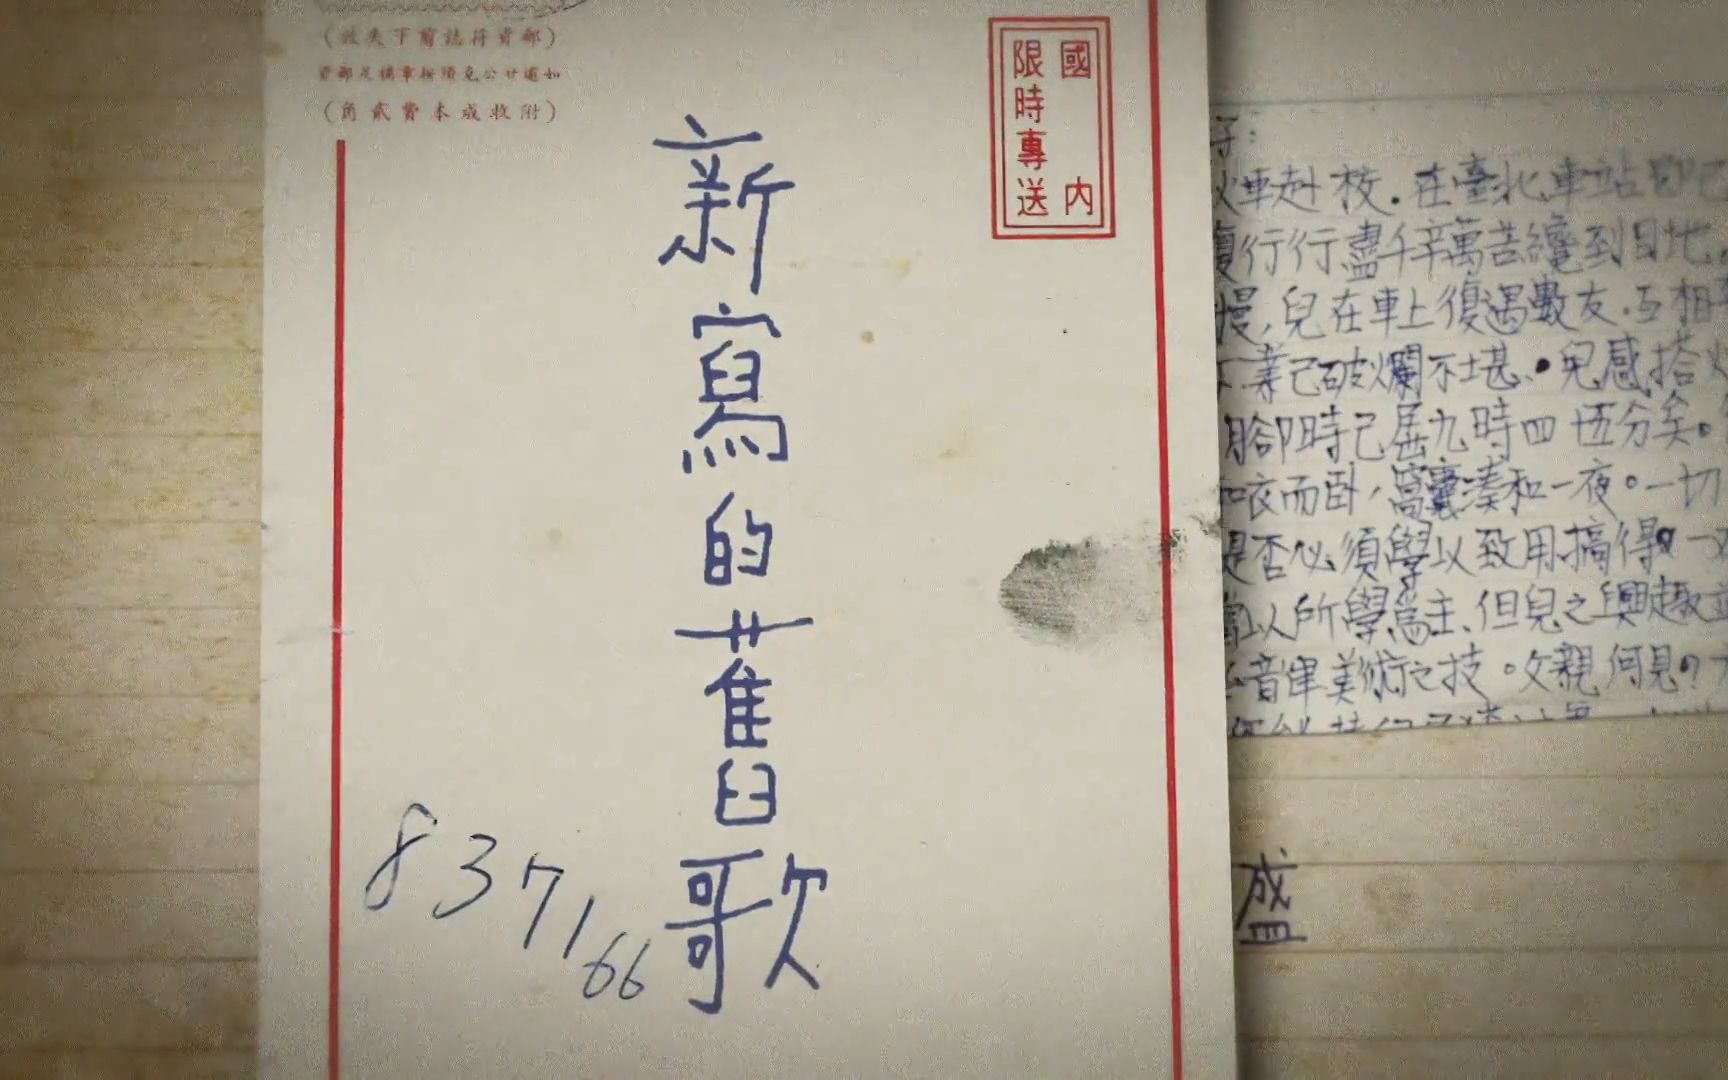 (郵資符誌剪下失效)
如逾廿公克須按章補足郵資
(附收成本費貳角)
國內
限時專送
新寫的舊歌
837166
火車赴校.在臺北車站
行行盡千辛萬苦纔到目地
慢,兒在車上復遇數友.互相
業已破爛不堪.兒感搭
腳時已屆九時四五分矣。
和衣而臥,窩囊湊和一夜。一切
是否必須學以致用搞得一
以所學為主、但兒之興趣
音律美術之技。父親何見?
盛